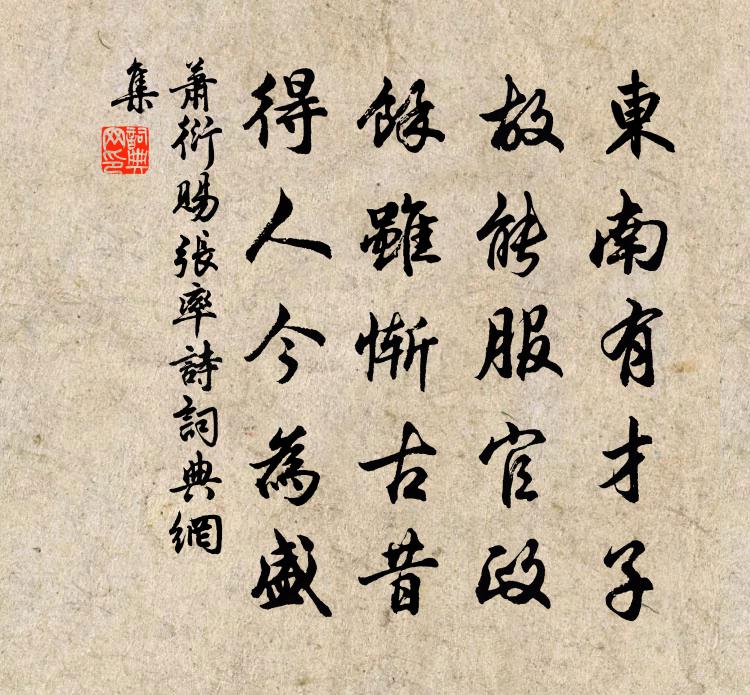 東南有才子
故能服官政
餘雖慚古昔
得人今為盛
蕭衍賜張率詩詞典網
集
詞典
網印